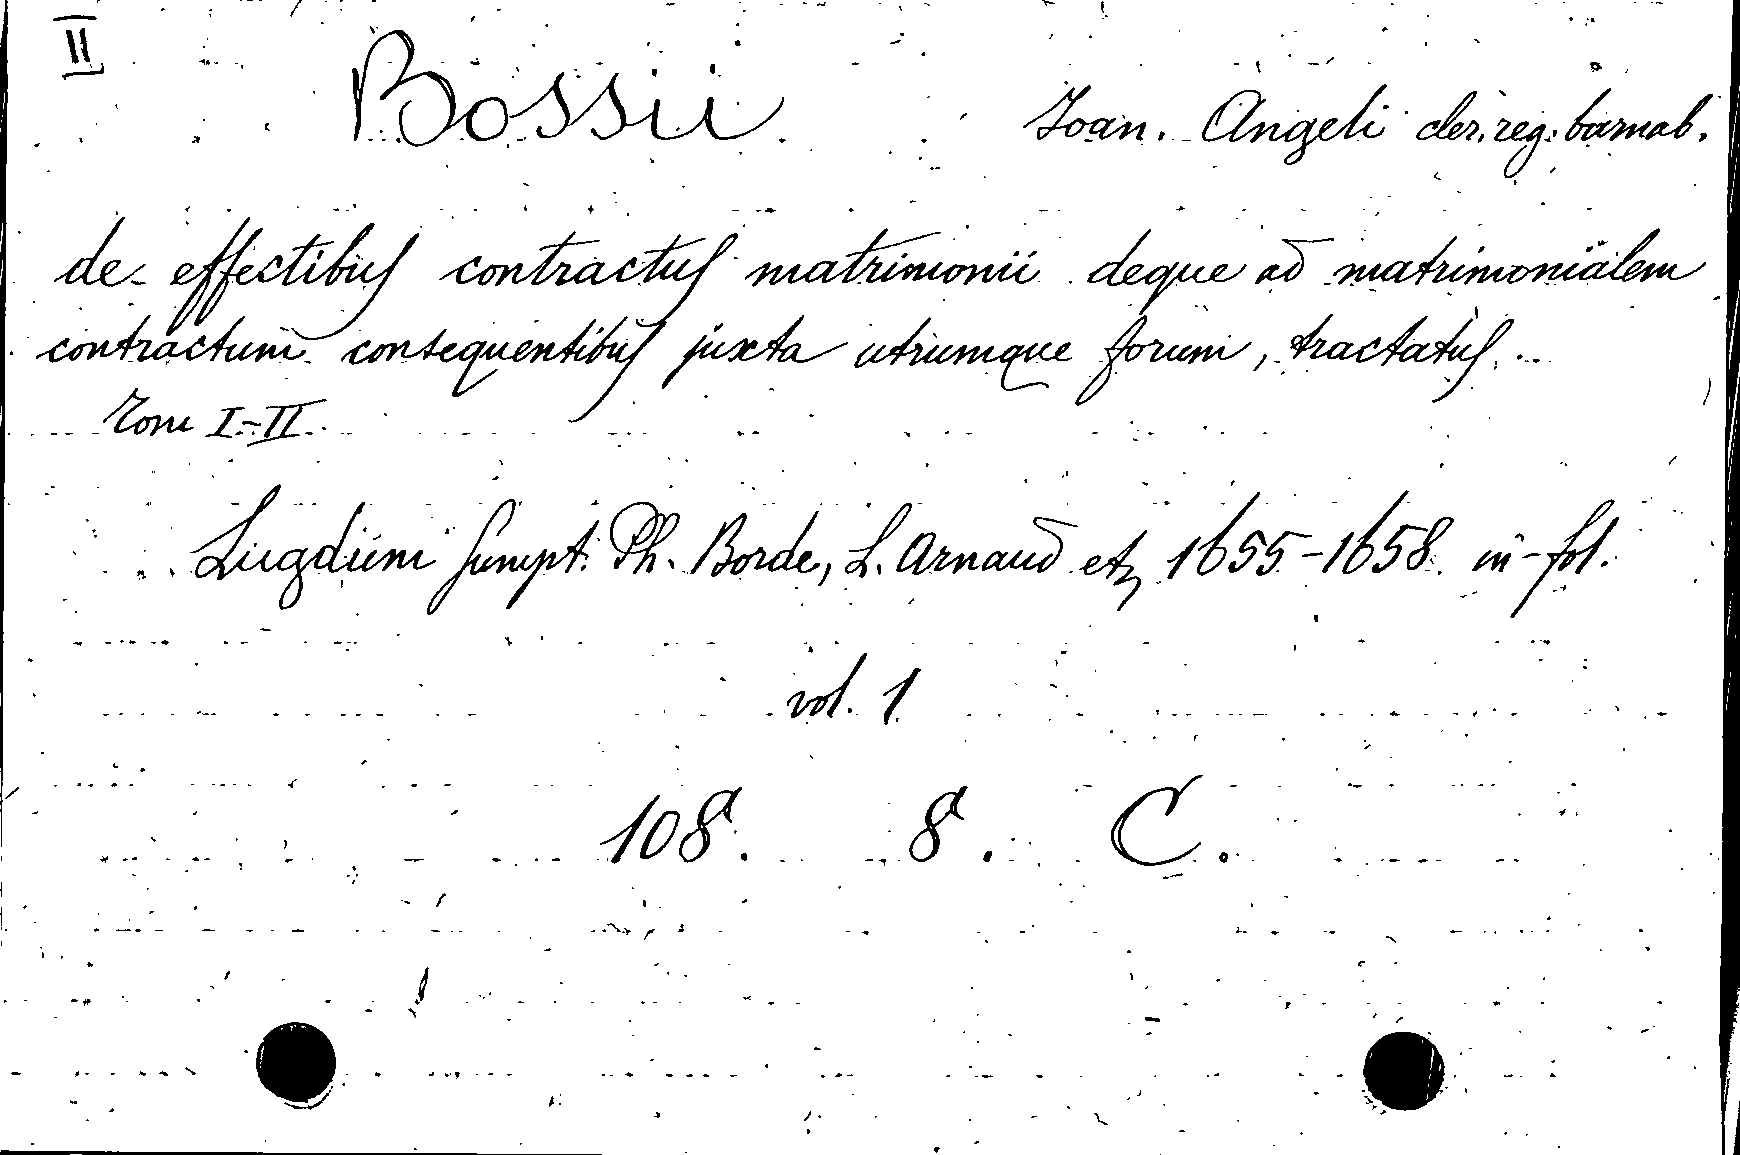 II
Bossii Joan. Angeli cler. reg. barnab.
de effectibus contractus matrimonii deque ad matrimonialem
contractum consequentibus juxta utrumque forum, tractatus.
Tom I-II
Lugduni sumpt. Ph. Borde, L. Arnaud etz 1655-1658 in-fol.
vol. 1
108. 8. C.